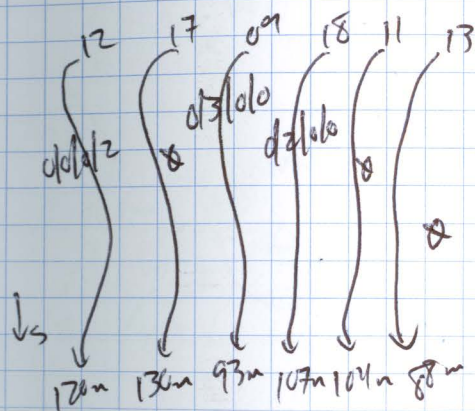 12 17 09 18 11 13
0/3/0/0
0/0/0/2 0/2/0/0
↓s
120m 130m 93m 107m 104m 88m